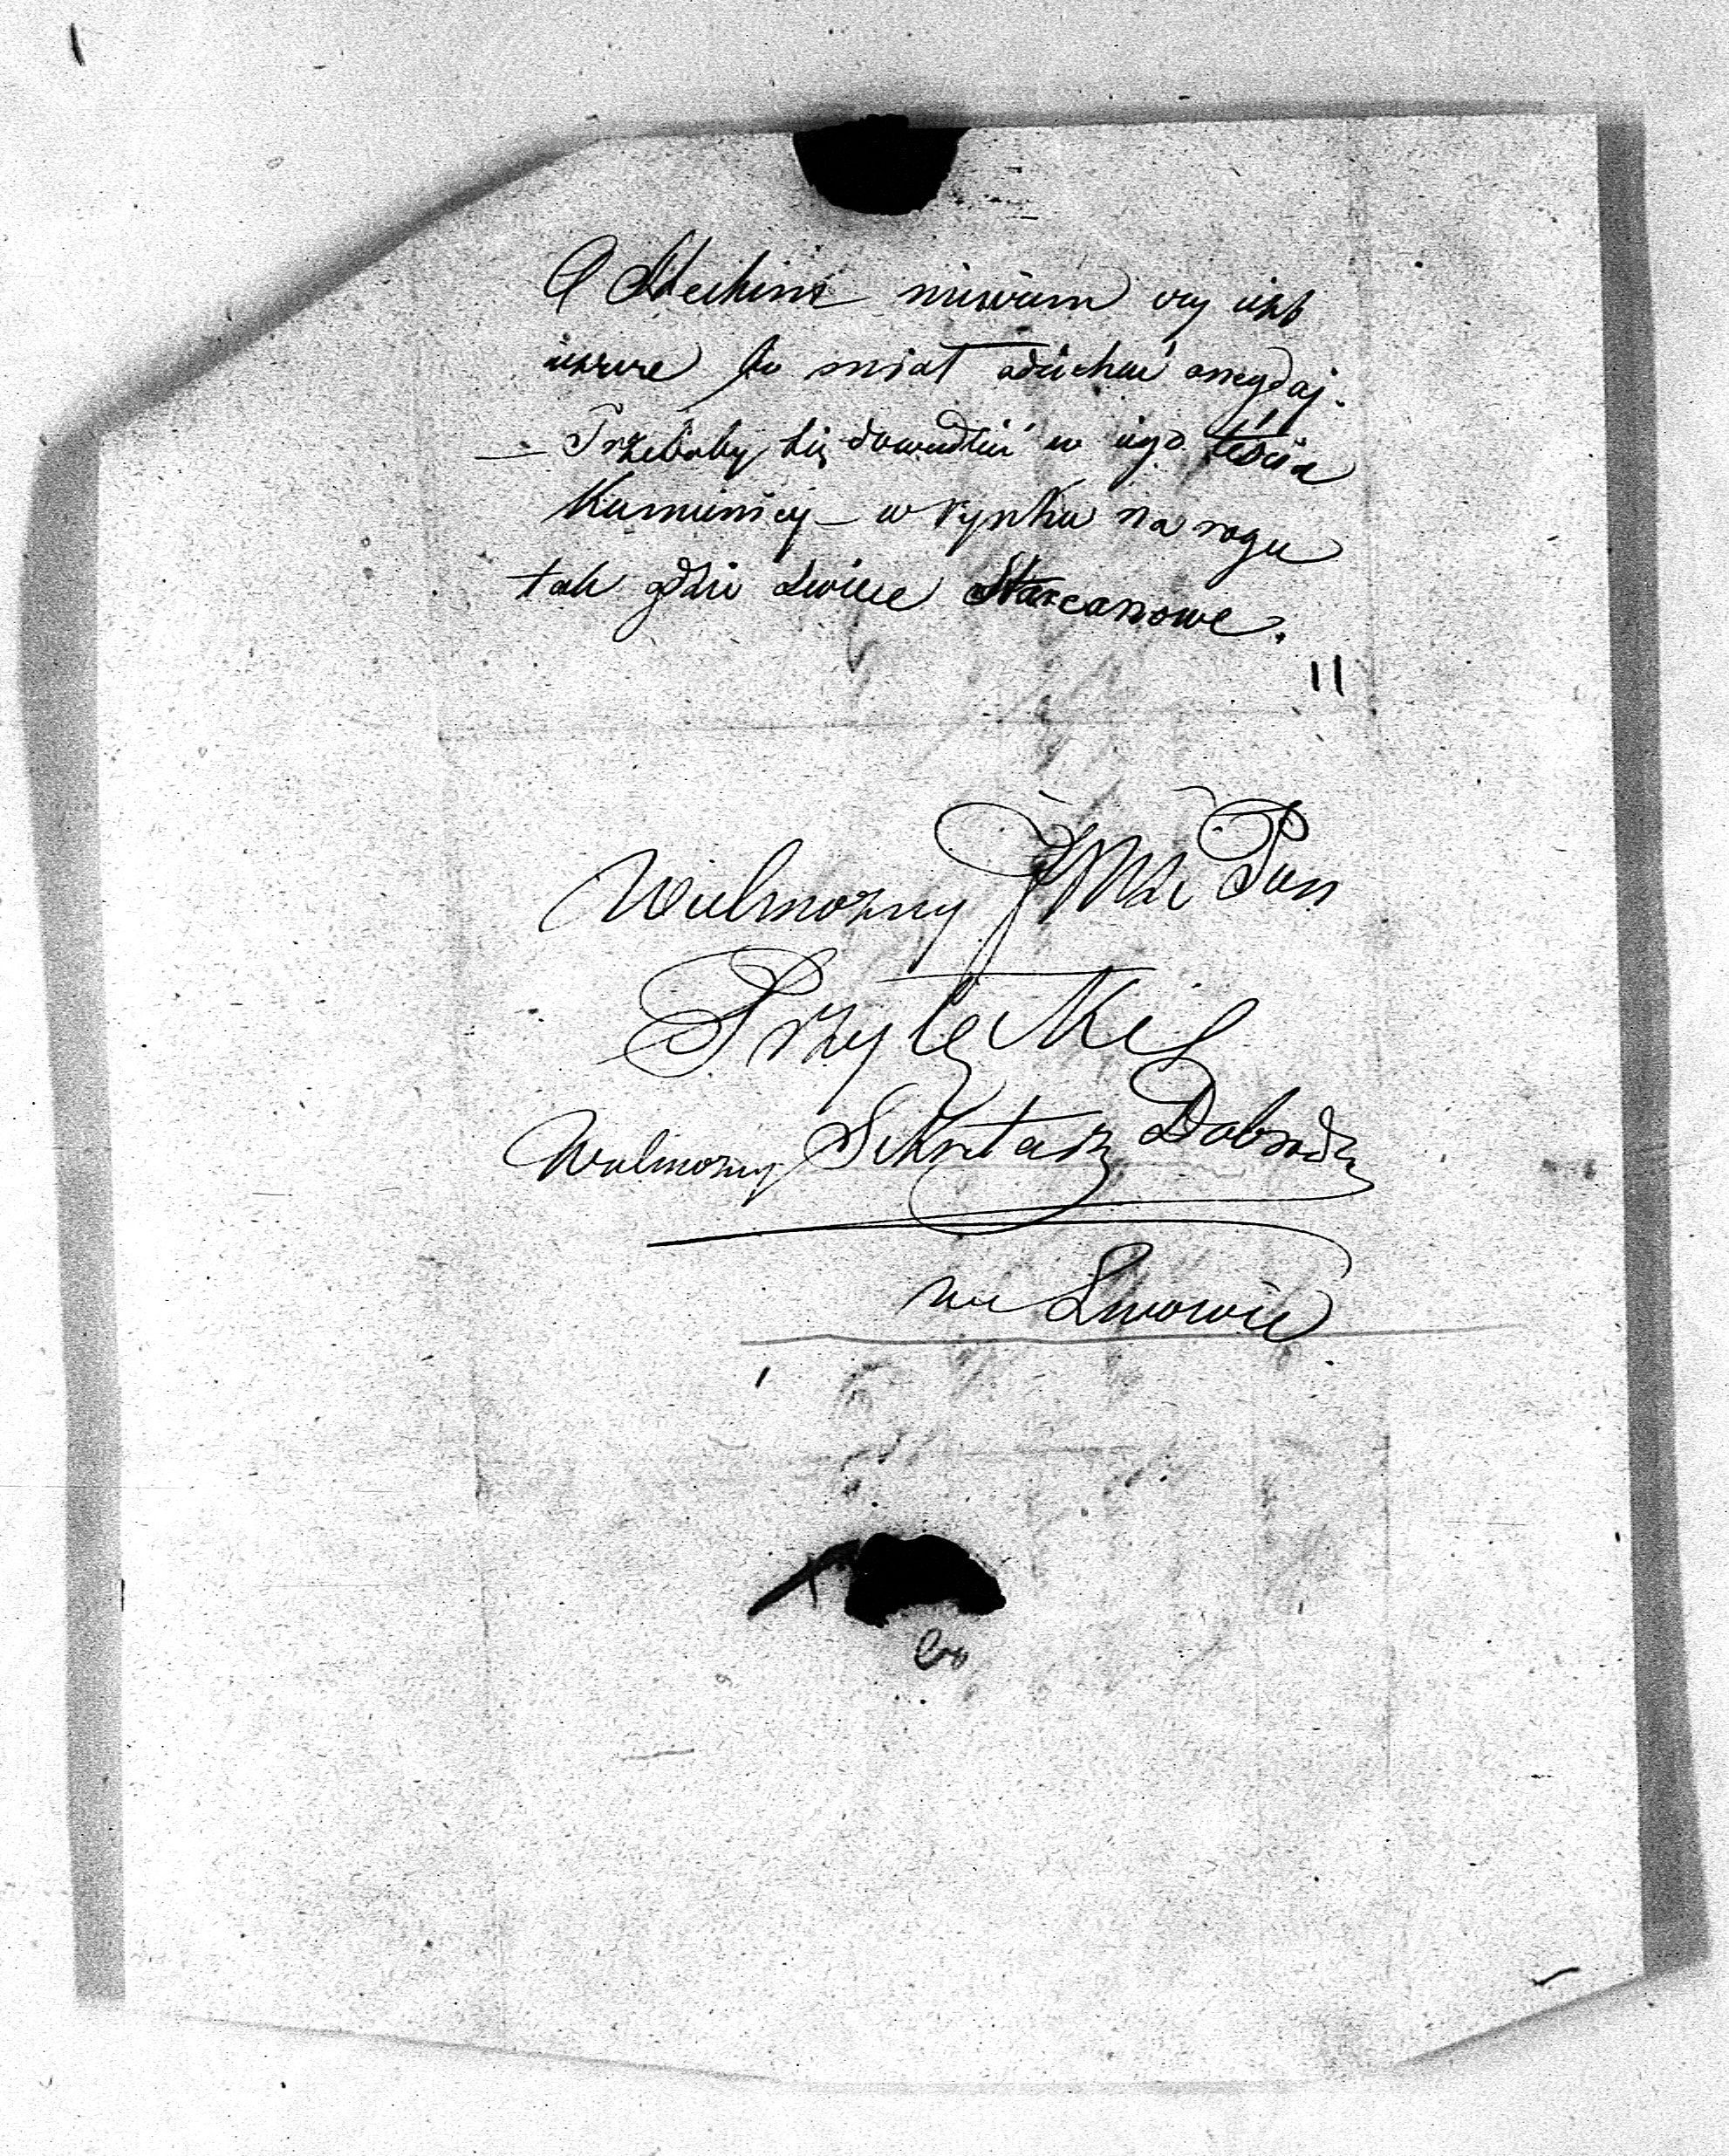 O Stechina niewiem czy jest
jeszcze bo miał odiechać onegdaj.
— Trzebaby się dowiedzieć w jego teścia
Kamienicy – w rynku na rogu
tak gdzie świece Stearanowe.
11
Wielmożny JMć Pan
Przyłęcki
Wielmożny Sekretarz Dobrodz
we Lwowie